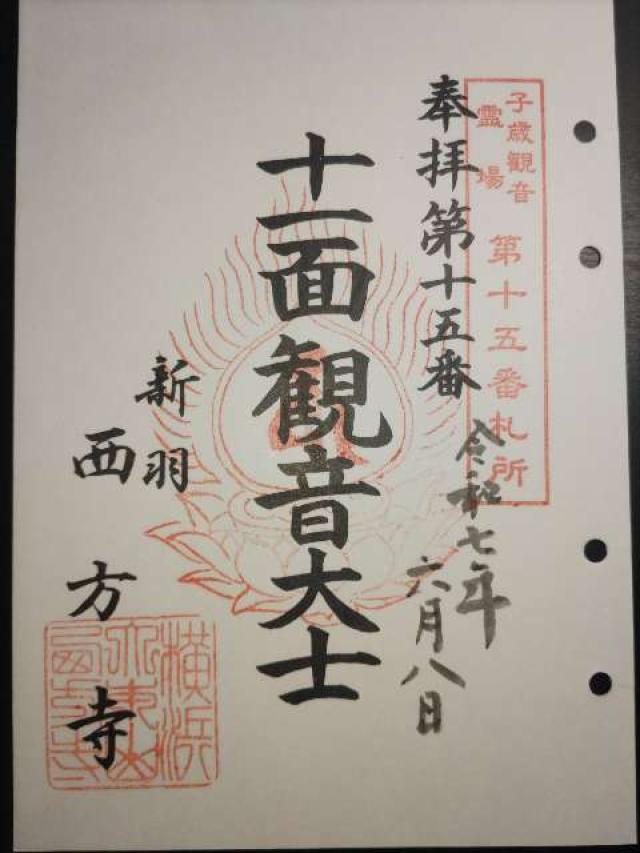 子歳観音
霊場
第十五番札所
奉拝第十五番
令和七年
六月八日
十一面観音大士
新羽
西方寺
横浜